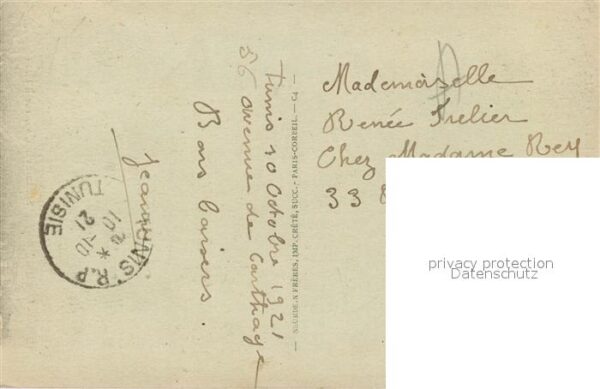 Tunis 10 Octobre 1921
56 avenue de Carthage
Bons baisers.
Jeanne
TUNIS R.P
10-10
21
TUNISIE
NEURDEIN FRÈRES, IMP. CRÉTÉ, SUCC. - PARIS-CORBEIL. - C4 -
Mademoiselle
Renée Trelier
Chez Madame Rey
33
privacy protection
Datenschutz